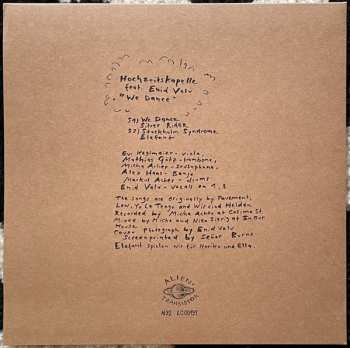 Hochzeitskapelle
feat. Enid Valu
"We Dance"
S1) We Dance
Silver Rider
S2) Stockholm Syndrome
Elefant
Evi Keglmaier - viola,
Mathias Götz - trombone,
Micha Acher - sousaphone,
Alex Haas - Banjo
Markus Acher - drums
Enid Valu - vocals on 1, 3
The songs are originally by Pavement,
Low, Yo La Tengo and Wir sind Helden.
Recorded by Micha Acher at Cosima St.
Mixed by Micha and Nico Sierig at
House.
Cover Photograph by Enid Valu
Screenprinted by Señor Burns
Elefant spielen wir für Noriko und Ella.
ALIEN
TRANSISTOR
N92